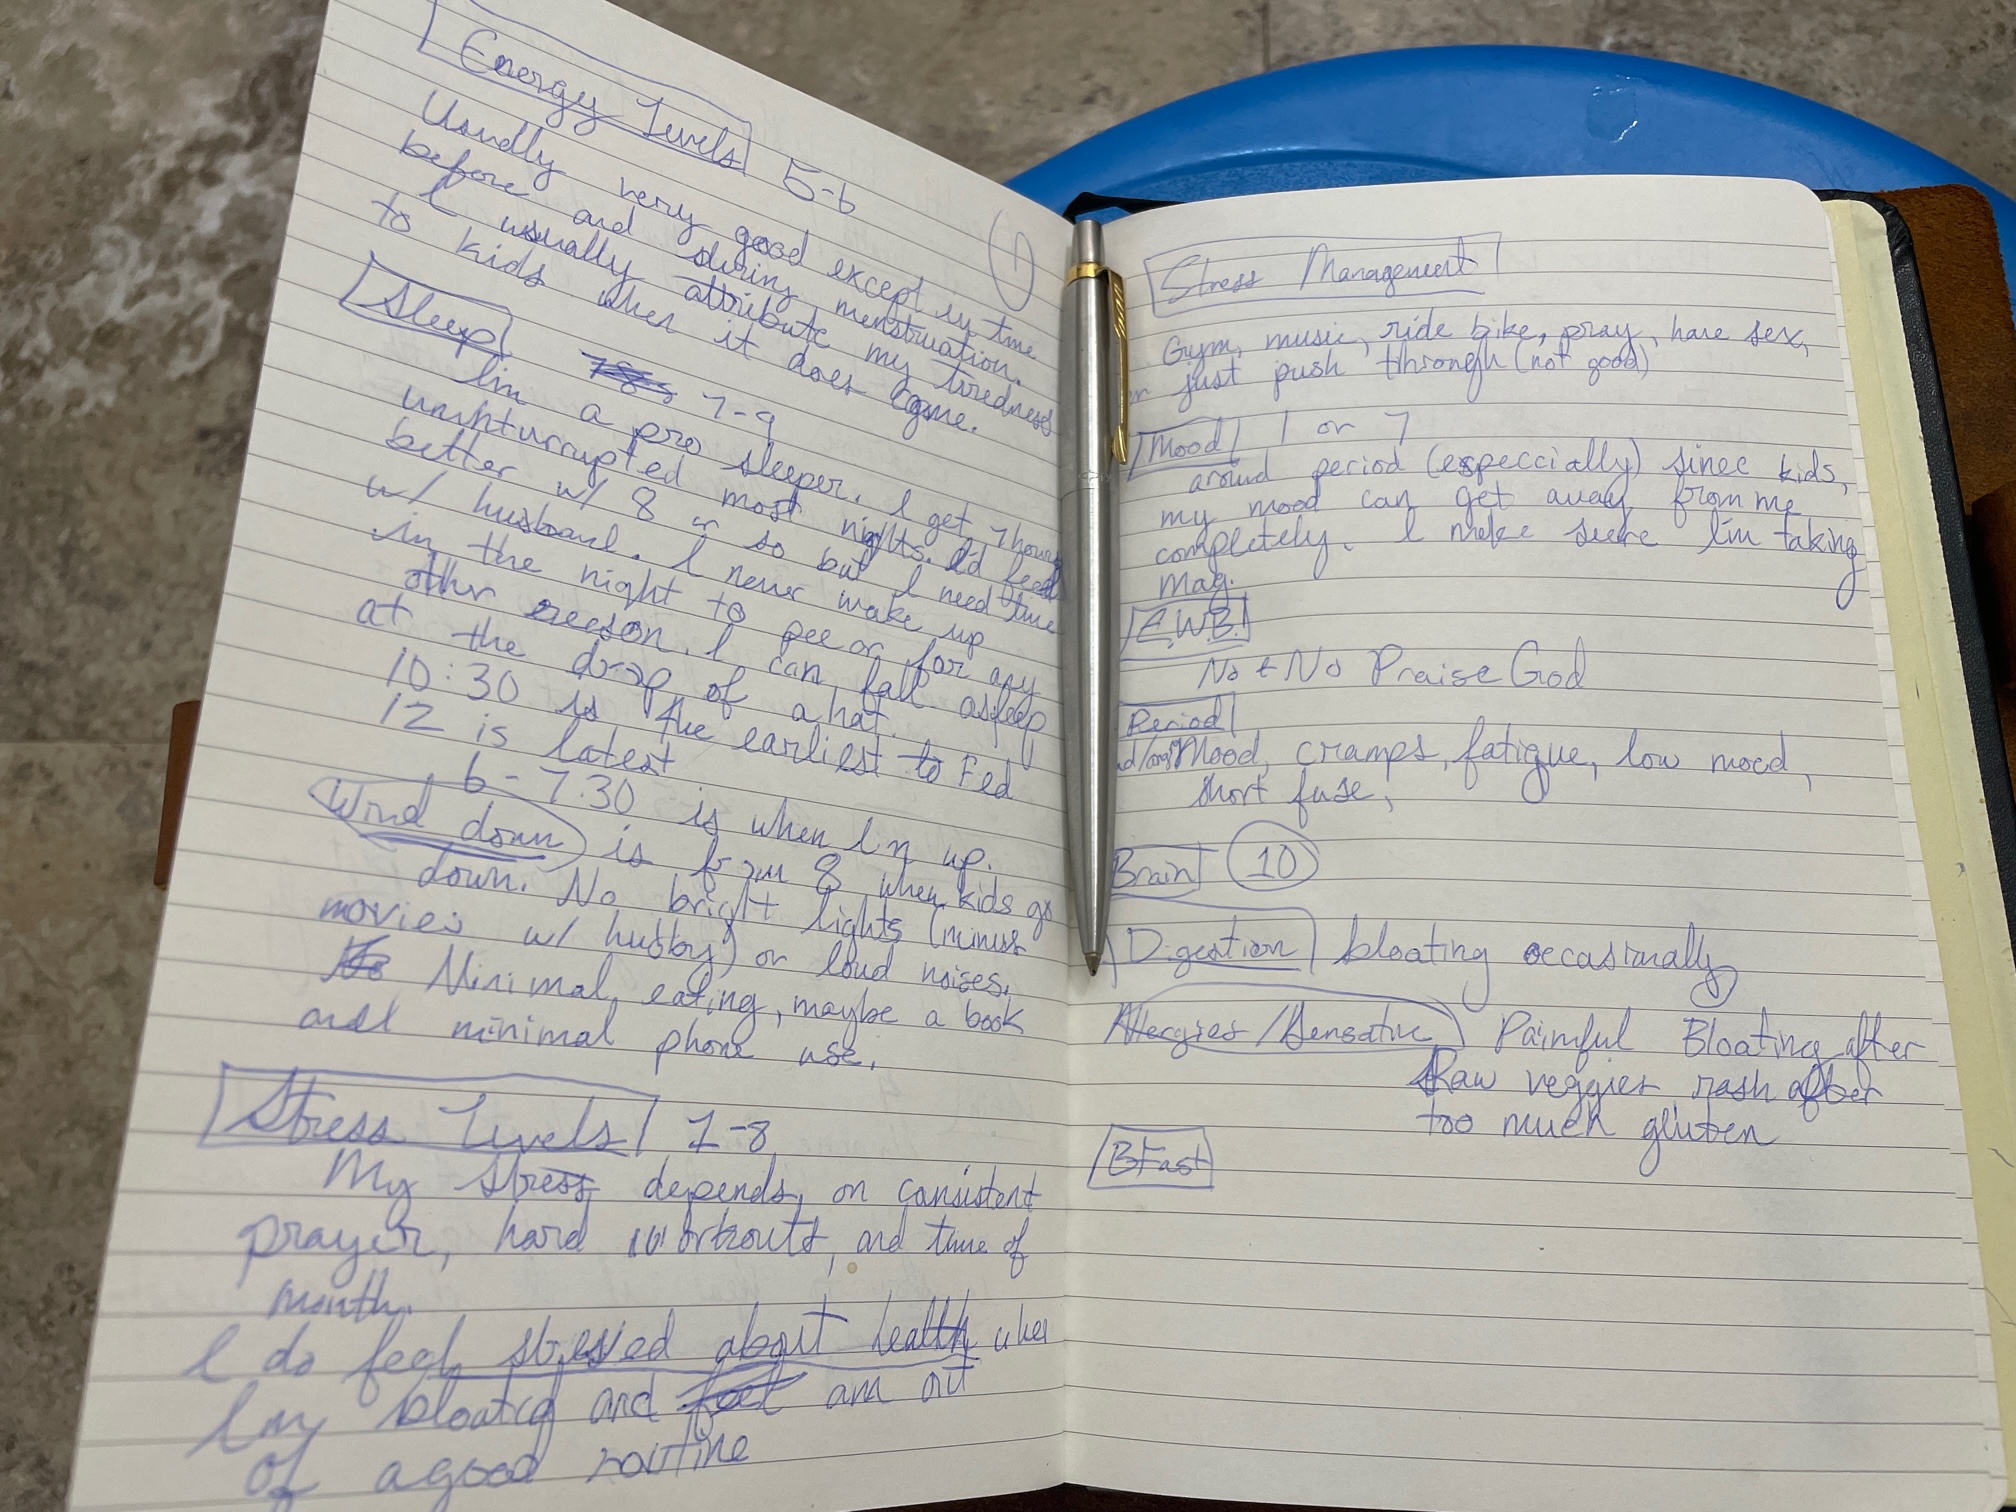 Energy Levels 5-6
Usually very good except my time
before and during menstruation,
to usually attribute my tiredness
kids when it does come.
Sleep 7-9
I'm a pro sleeper. I get 7 hours
uninterrupted most nights. I'd feel
better w/ 8 or so but I need time
w/ husband. I never wake up
in the night to pee or for any
other reason. I can fall asleep
at the drop of a hat.
10:30 is the earliest to bed
12 is latest
6-7:30 is when I'm up.
Wind down is from 8 when kids go
down. No bright lights (minus
movies w/ hubby) or loud noises,
Minimal eating, maybe a book
and minimal phone use.
Stress Levels 7-8
My stress depends on consistent
prayer, hard workouts and time of
month.
I do feel stressed about health when
I'm bloated and am out
of a good routine
Stress Management
Gym, music, ride bike, pray, have sex,
or just push through (not good)
Mood 1 or 7
around period (especcially) since kids,
my mood can get away from me
completely. I make sure I'm taking
Mag.
E.W.B.
No + No Praise God
Period
Mood, cramps, fatigue, low mood,
short fuse,
Brain 10
Digestion bloating occasionally
Alergies/Sensative Painful Bloating after
Raw veggies - rash after
too much gluten
Bfast